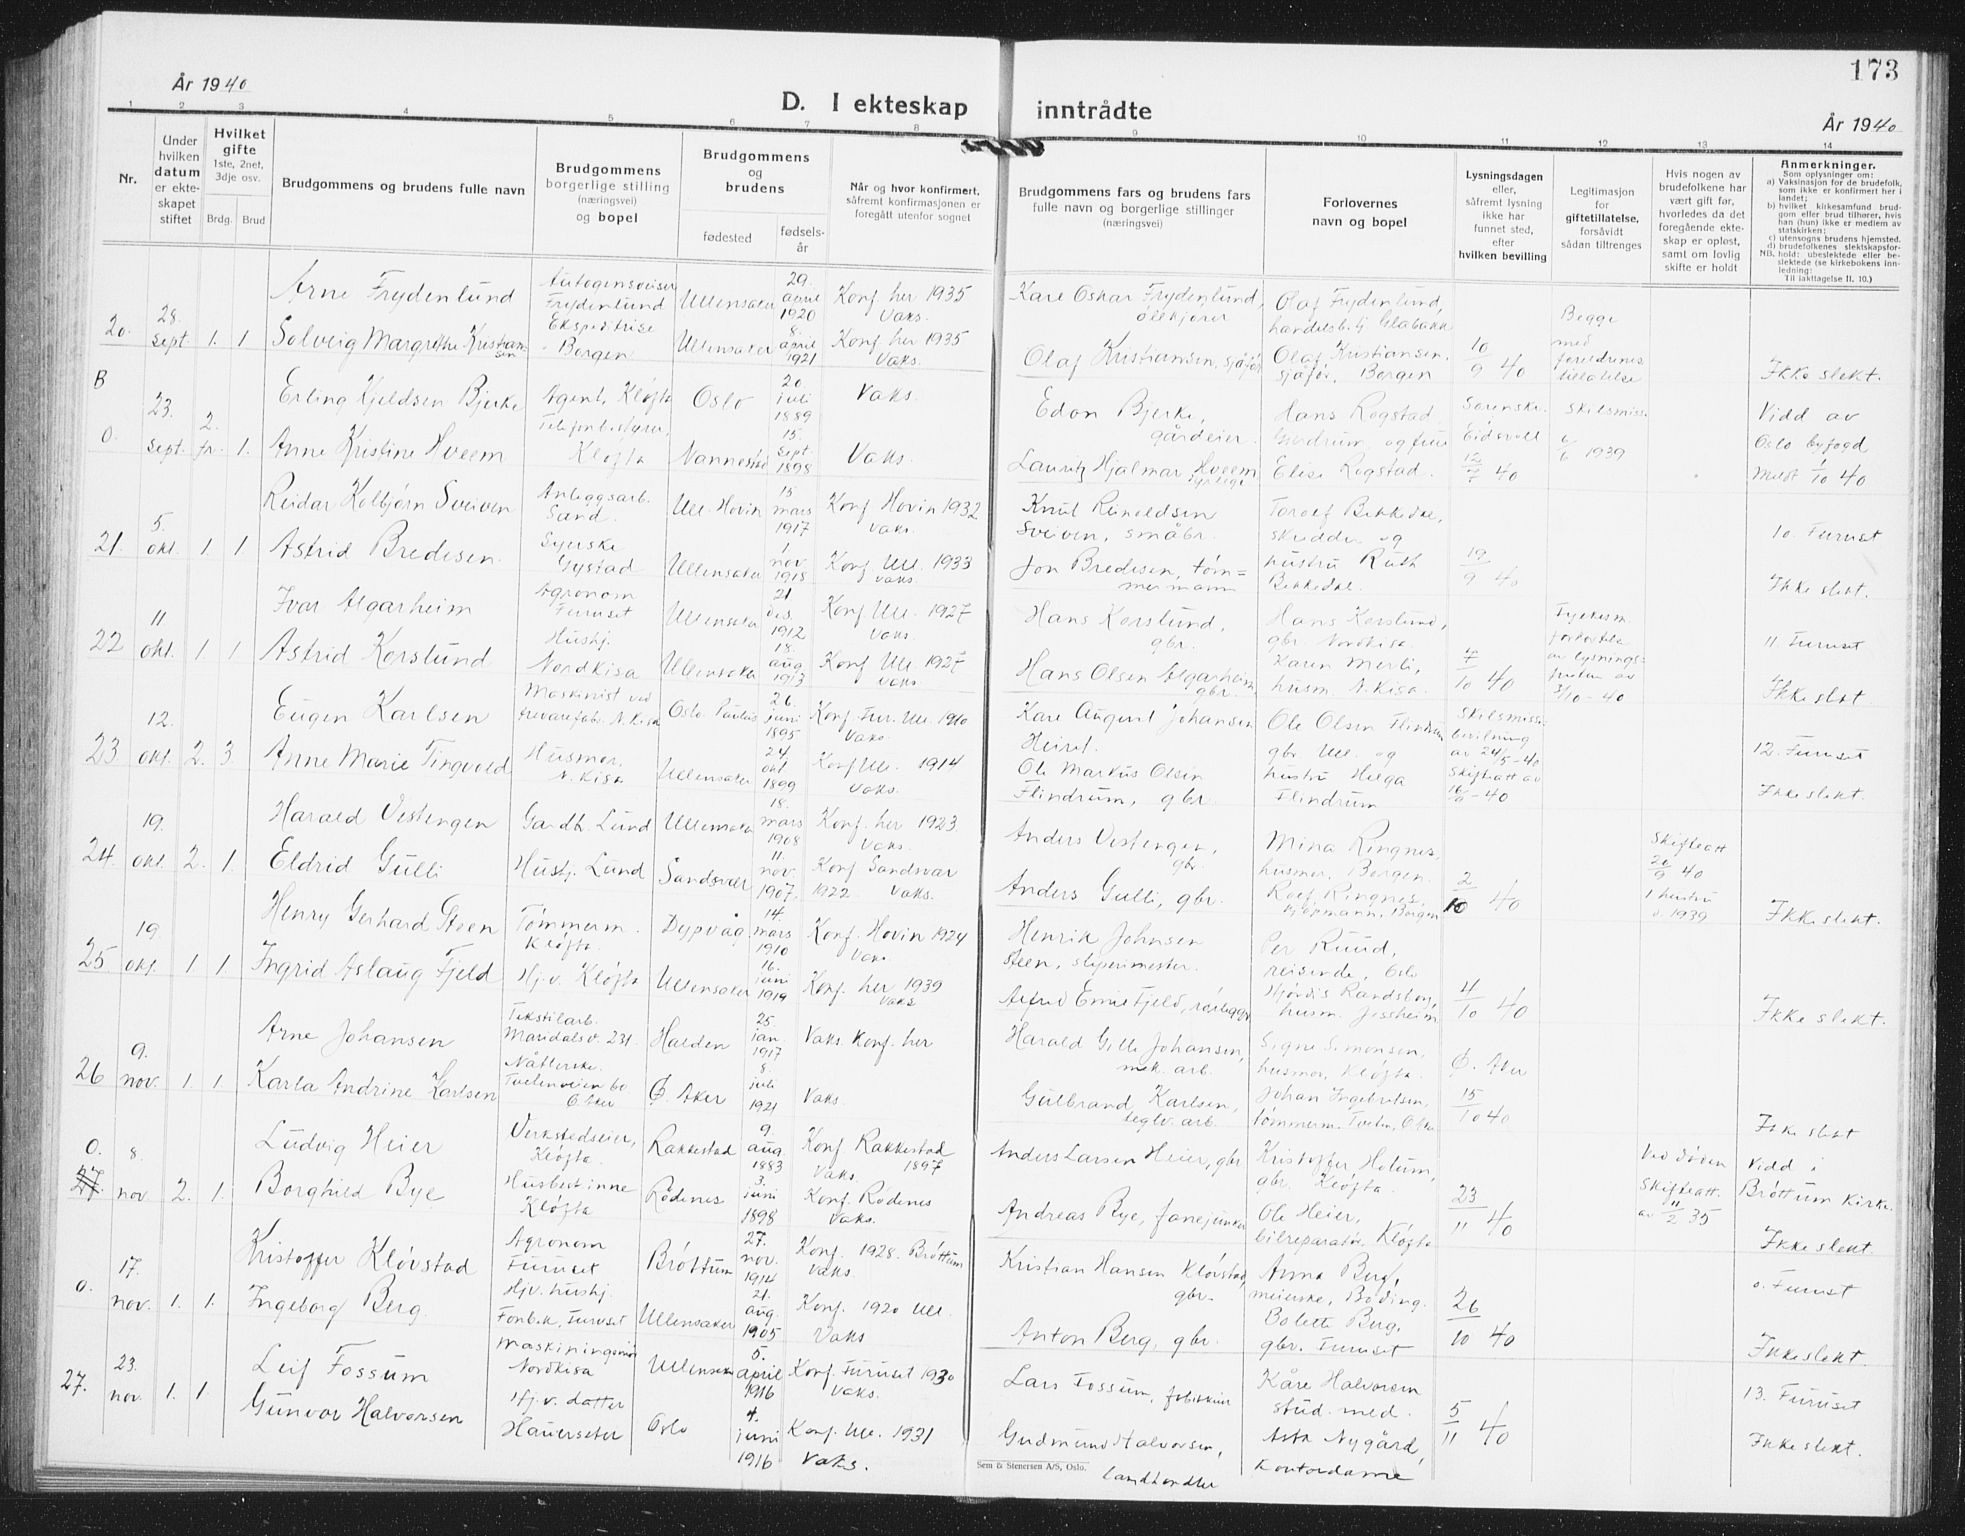 År 1940
173
D. I ekteskap inntrådte
År 1940
1 2 3 4 5 6 7 8 9 10 11 12 13 14
Nr.
Under hvilken datum er ekteskapet stiftet
Hvilket gifte
1ste, 2net, 3dje osv.
Brdg. Brud
Brudgommens og brudens fulle navn
Brudgommens borgerlige stilling (næringsvei) og bopel
Brudgommens og brudens
fødested
fødsels-år
Når og hvor konfirmert, såfremt konfirmasjonen er foregått utenfor sognet
Brudgommens fars og brudens fars fulle navn og borgerlige stillinger (næringsvei)
Forlovernes navn og bopel
Lysningsdagen eller, såfremt lysning ikke har funnet sted, efter hvilken bevilling
Legitimasjon for giftetillatelse, forsåvidt sådan tiltrenges
Hvis nogen av brudefolkene har vært gift før, hvorledes da det foregående ekteskap er opløst, samt om lovlig skifte er holdt
Anmerkninger.
Som oplysninger om:
a) Vaksinasjon for de brudefolk, som ikke er konfirmert her i landet;
b) hvilket kirkesamfund brudgom eller brud tilhører, hvis han (hun) ikke er medlem av statskirken;
c) utensogns brudens hjemsted.
d) brudefolkenes slektskapsforhold: ubeslektede eller beslektede (se kirkebokens innledning:
NB. Til iakttagelse II. 10.)
20. 28. sept. 1. 1
Arne Frydenlund
Frydenlund
Ullensaker
29. april 1920
Konf. her 1935
Vaks.
Kare Oskar Frydenlund, ølkjører
Olaf Frydenlund,
Solveig Margrethe Kristiansen
Ekspeditrise
Borgen
Ullensaker
8. april 1921
Konf. her 1935
Vaks.
Olaf Kristiansen, sjåfør
Olaf Kristiansen, sjåfør, Borgen
10/9 40
Begge med foreldrenes tillatelse
Ikke slekt.
B
O. 23. sept. 2. fr. 1.
Erling Kjeldsen Bjerke
Agent, Kløfta
Oslo
20. juli 1889
Vaks.
Edon Bjerke, gårdeier.
Hans Rogstad
Gjerdrum, og frue
Sorenskr. Eidsvoll
Skilsmiss. 6/6 1939
Vidd av Oslo byfogd
Anne Kristine Hveem
Kløfta
Nannestad
15. sept. 1898
Vaks.
Lauritz Hjalmar Hveem
Elise Rogstad.
12/7 40
Meldt 1/10 40
21. 5. okt. 1. 1
Reidar Kolbjørn Sveiven
Anleggsarb. Sand.
Ull. Hovin
15 mars 1917
Konf. Hovin 1932
Vaks.
Knut Reinoldsen Sveiven, småbr.
Torolf Bekkedal, skredder og
10. Furuset
Astrid Bredesen.
Syerske
Gystad
Ullensaker
1 nov 1918
Konf. Ull. 1933
Vaks.
Jon Bredesen, tømmermann
hustru Ruth Bekkedal.
19/9 40
Ikke slekt.
22 11 okt. 1. 1
Ivar Algarheim
Agronom
Furuset
Ullensaker
21 des. 1912
Konf. Ull. 1927
Vaks.
Hans Korslund, gbr.
Hans Korslund, gbr. Nordkisa.
11. Furuset
Astrid Korslund
Hushj.
Nordkisa
Ullensaker
18. aug. 1913
Konf. Ull. 1927
Vaks.
Hans Olsen Algarheim, gbr.
Karen Merli, husm. N. Kisa.
4/10 40
Ikke slekt.
23 12. okt. 2. 3
Eugen Karlsen
Maskinist ved trevarefabr. N. Kisa
Oslo Paulus
26. juni 1895
Konf. Fur. Ull. 1910
Vaks.
Kare August Johansen Heiret.
Ole Olsen Flindrum gbr. Ull. og
Skilsmisse bevilning av 24/5-40
12. Furuset
Anne Marie Tingvold
Husmor,
N. Kisa
Ullensaker
24 okt 1899
Konf. Ull. 1914
Vaks.
Ole Markus Olsen Flindrum, gbr.
hustru Helga Flindrum
Ikke slekt.
24. 19. okt. 2. 1.
Harald Vestengen
Gardbr. Lund
Ullensaker
18. mars 1908
Konf. her 1923
Vaks.
Anders Vestengen, gbr.
Mina Ringnes, husmor, Borgen.
Skifteatt 20/9 40
Eldrid Gulli
Hushj. Lund
Sandsvær
11. nov. 1907.
Konf Sandsvær 1922. Vaks.
Anders Gulli, gbr.
Rolf Ringnes, kjøpmann, Borgen
2/10 40
1 hustru d. 1939
Ikke slekt.
25. 19. okt. 1. 1.
Henry Gerhard Steen
Tømmerm.
Kløfta.
Dypvåg
14. mars 1910
Konf. Hovin 1924
Vaks.
Henrik Johnsen Steen, sliperimester.
Per Ruud, reisende, Oslo
Ingrid Aslaug Fjeld
Hj. v. Kløfta
Ullensaker
16. juni 1919
Konf. her 1939
Vaks
Alfred Emil Fjeld, rørleggr
Hjørdis Randsborg, husm. Jessheim
4/10 40
Ikke slekt.
26 9. nov. 1 1.
Arne Johansen
Tekstilarb.
Maridalsv. 231
Halden
25. jan. 1917
Vaks. Konf. her
Harald Gille Johansen, mek. arb.
Signe Simonsen, husmor, Kløfta.
Ø. Aker
Karla Andrine Karlsen
Tvetenveien 60
Ø. Aker
Ø. Aker
8. juli 1921
Vaks.
Gulbrand Karlsen, teglv. arb.
Johan Ingebretsen, tømmerm.
15/10 40
Ikke slekt
O. 27. 8. nov 2. 1.
Ludvig Heier
Verkstedseier, Kløfta.
Rakkestad
9. aug. 1883
Konf. Rakkestad 1897
Vaks.
Anders Larsen Heier, gbr
Kristoffer Holum, gbr. Kløfta.
Ved døden
Vidd i
Borghild Bye
Husbestinne
Kløfta
Rødenes
3. juni 1898
Konf. Rødenes
Vaks.
Andreas Bye, fanejunker
Ole Heier, bilreparatør Kløfta
23/11 40
Skifteatt. av 11/2 35
Brøttum kirke.
Ikke slekt.
O. 17. nov. 1. 1.
Kristoffer Kløvstad
Agronom
Furuset
Brøttum
27. nov. 1914
Konf. 1928. Brøttum
Vaks.
Kristian Hansen Kløvstad, gbr.
Anna Berg, meierske,
o. Furuset
Ingeborg Berg.
Hjv. hushj.
Ullensaker
21. aug. 1905
Konf. 1920 Ull.
Vaks
Anton Berg, gbr.
Bolette Berg, gbr. Furuset
26/10 40
Ikke slekt.
27. 23. nov. 1. 1.
Leif Fossum
Nordkisa
Ullensaker
5. april 1916
Konf. Furuset 1930
Vaks.
Lars Fossum,
Kåre Halvorsen stud. med.
13. Furuset
Gunvor Halvorsen
Hj. v. datter
Hauerseter
Oslo
4. juni 1916
Konf. Ull. 1931
Vaks.
Gudmund Halvorsen, landhandler
Asta Nygård, kontordame
5/11 40
Ikke slekt.
Sem & Stenersen A/S, Oslo.